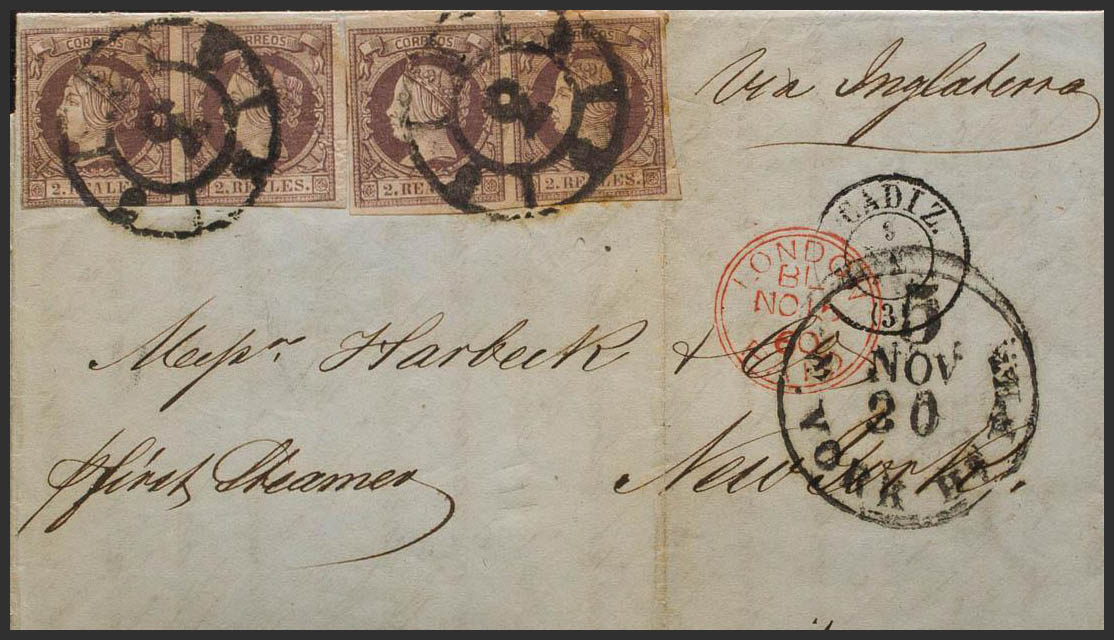 CORREOS CORREOS CORREOS
2. REALES 2. REALES. 2. REALES 2. REALES.
Via Inglaterra
CADIZ.
LONDON
BL
NO
60
PAID
5
NOV
20
YORK
Messrs Harbeck & Co
pr first Steamer
New York.